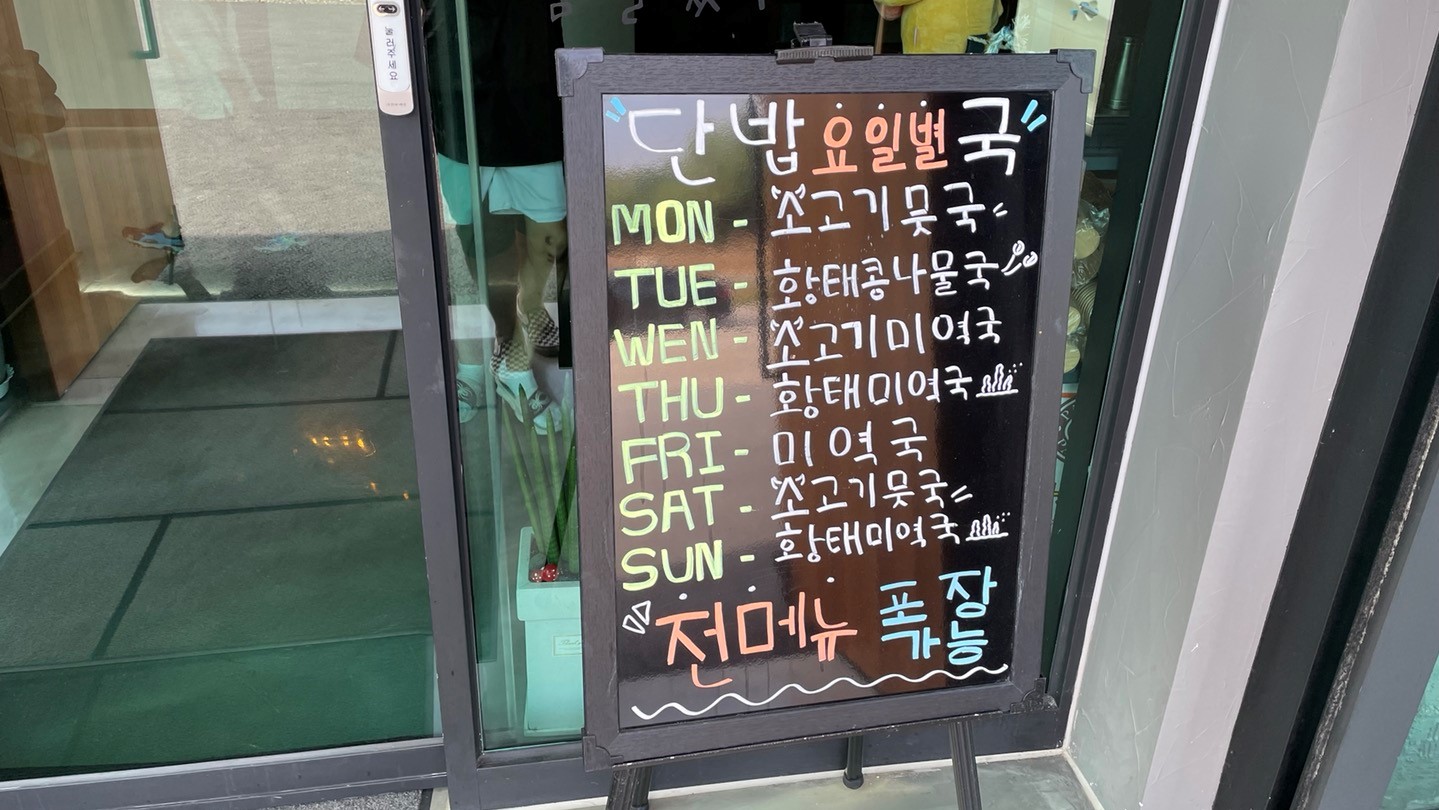 눌러주세요
단밥 요일별 국
MON - 쏘고기뭇국
TUE - 황태콩나물국
WEN - 쏘고기미역국
THU - 황태미역국
FRI - 미역국
SAT - 쏘고기뭇국
SUN - 황태미역국
전메뉴 포장
가능